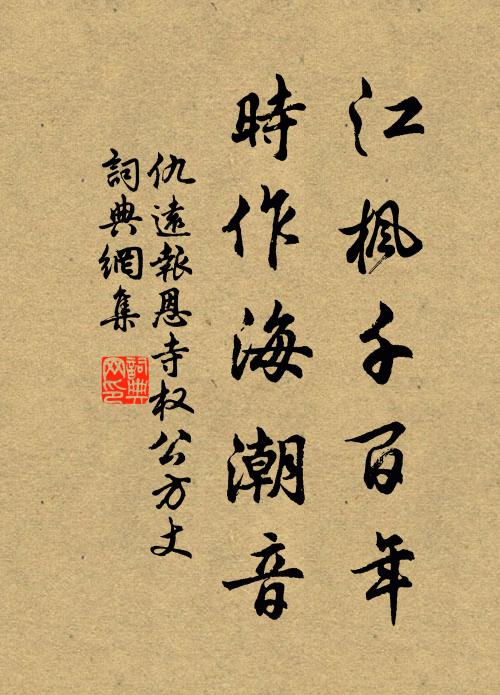 江楓千百年
時作海潮音
仇遠報恩寺权公方丈
詞典網集
詞典網印